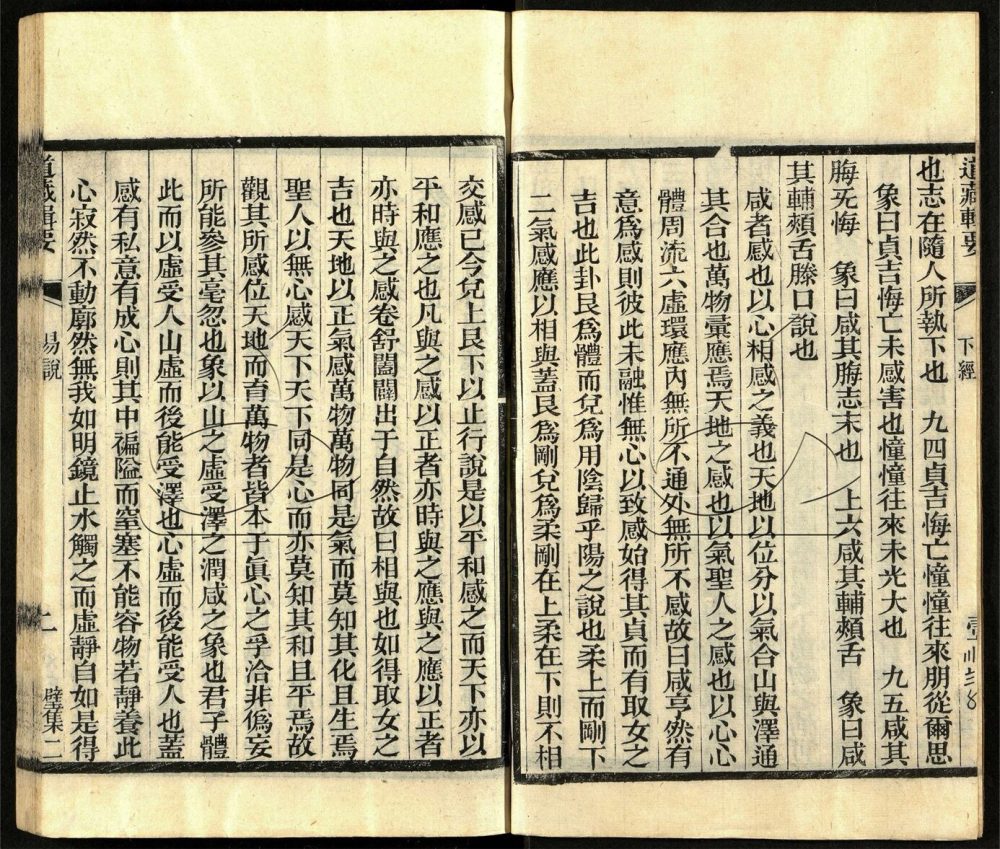 道藏輯要
下經
也志在隨人所執下也 九四貞吉悔亡憧憧往來朋從爾思
象曰貞吉悔亡未感害也憧憧往來未光大也 九五咸其
脢无悔 象曰咸其脢志末也 上六咸其輔頰舌 象曰咸
其輔頰舌滕口說也
咸者感也以心相感之義也天地以位分以氣合山與澤通
其合也萬物彙應焉天地之感也以氣聖人之感也以心心
體周流六虛環應內無所不通外無所不感故曰咸亨然有
意爲感則彼此未融惟無心以致感始得其貞而有取女之
吉也此卦艮爲體而兌爲用陰歸乎陽之說也柔上而剛下
二氣感應以相與蓋艮爲剛兌爲柔剛在上柔在下則不相
交感已今兌上艮下以止行說是以平和感之而天下亦以
平和應之也凡與之感以正者亦時與之應與之應以正者
亦時與之感卷舒闔闢出于自然故曰相與也如得取女之
吉也天地以正氣感萬物萬物同是氣而莫知其化且生焉
聖人以無心感天下天下同是心而亦莫知其和且平焉故
觀其所感位天地而育萬物者皆本于眞心之孚洽非僞妄
所能參其毫忽也象以山之虛受澤之潤咸之象也君子體
此而以虛受人山虛而後能受澤也心虛而後能受人也蓋
感有私意有成心則其中褊隘而窒塞不能容物若靜養此
心寂然不動廓然無我如明鏡止水觸之而虛靜自如是得
道藏輯要
易說
二
壁集二